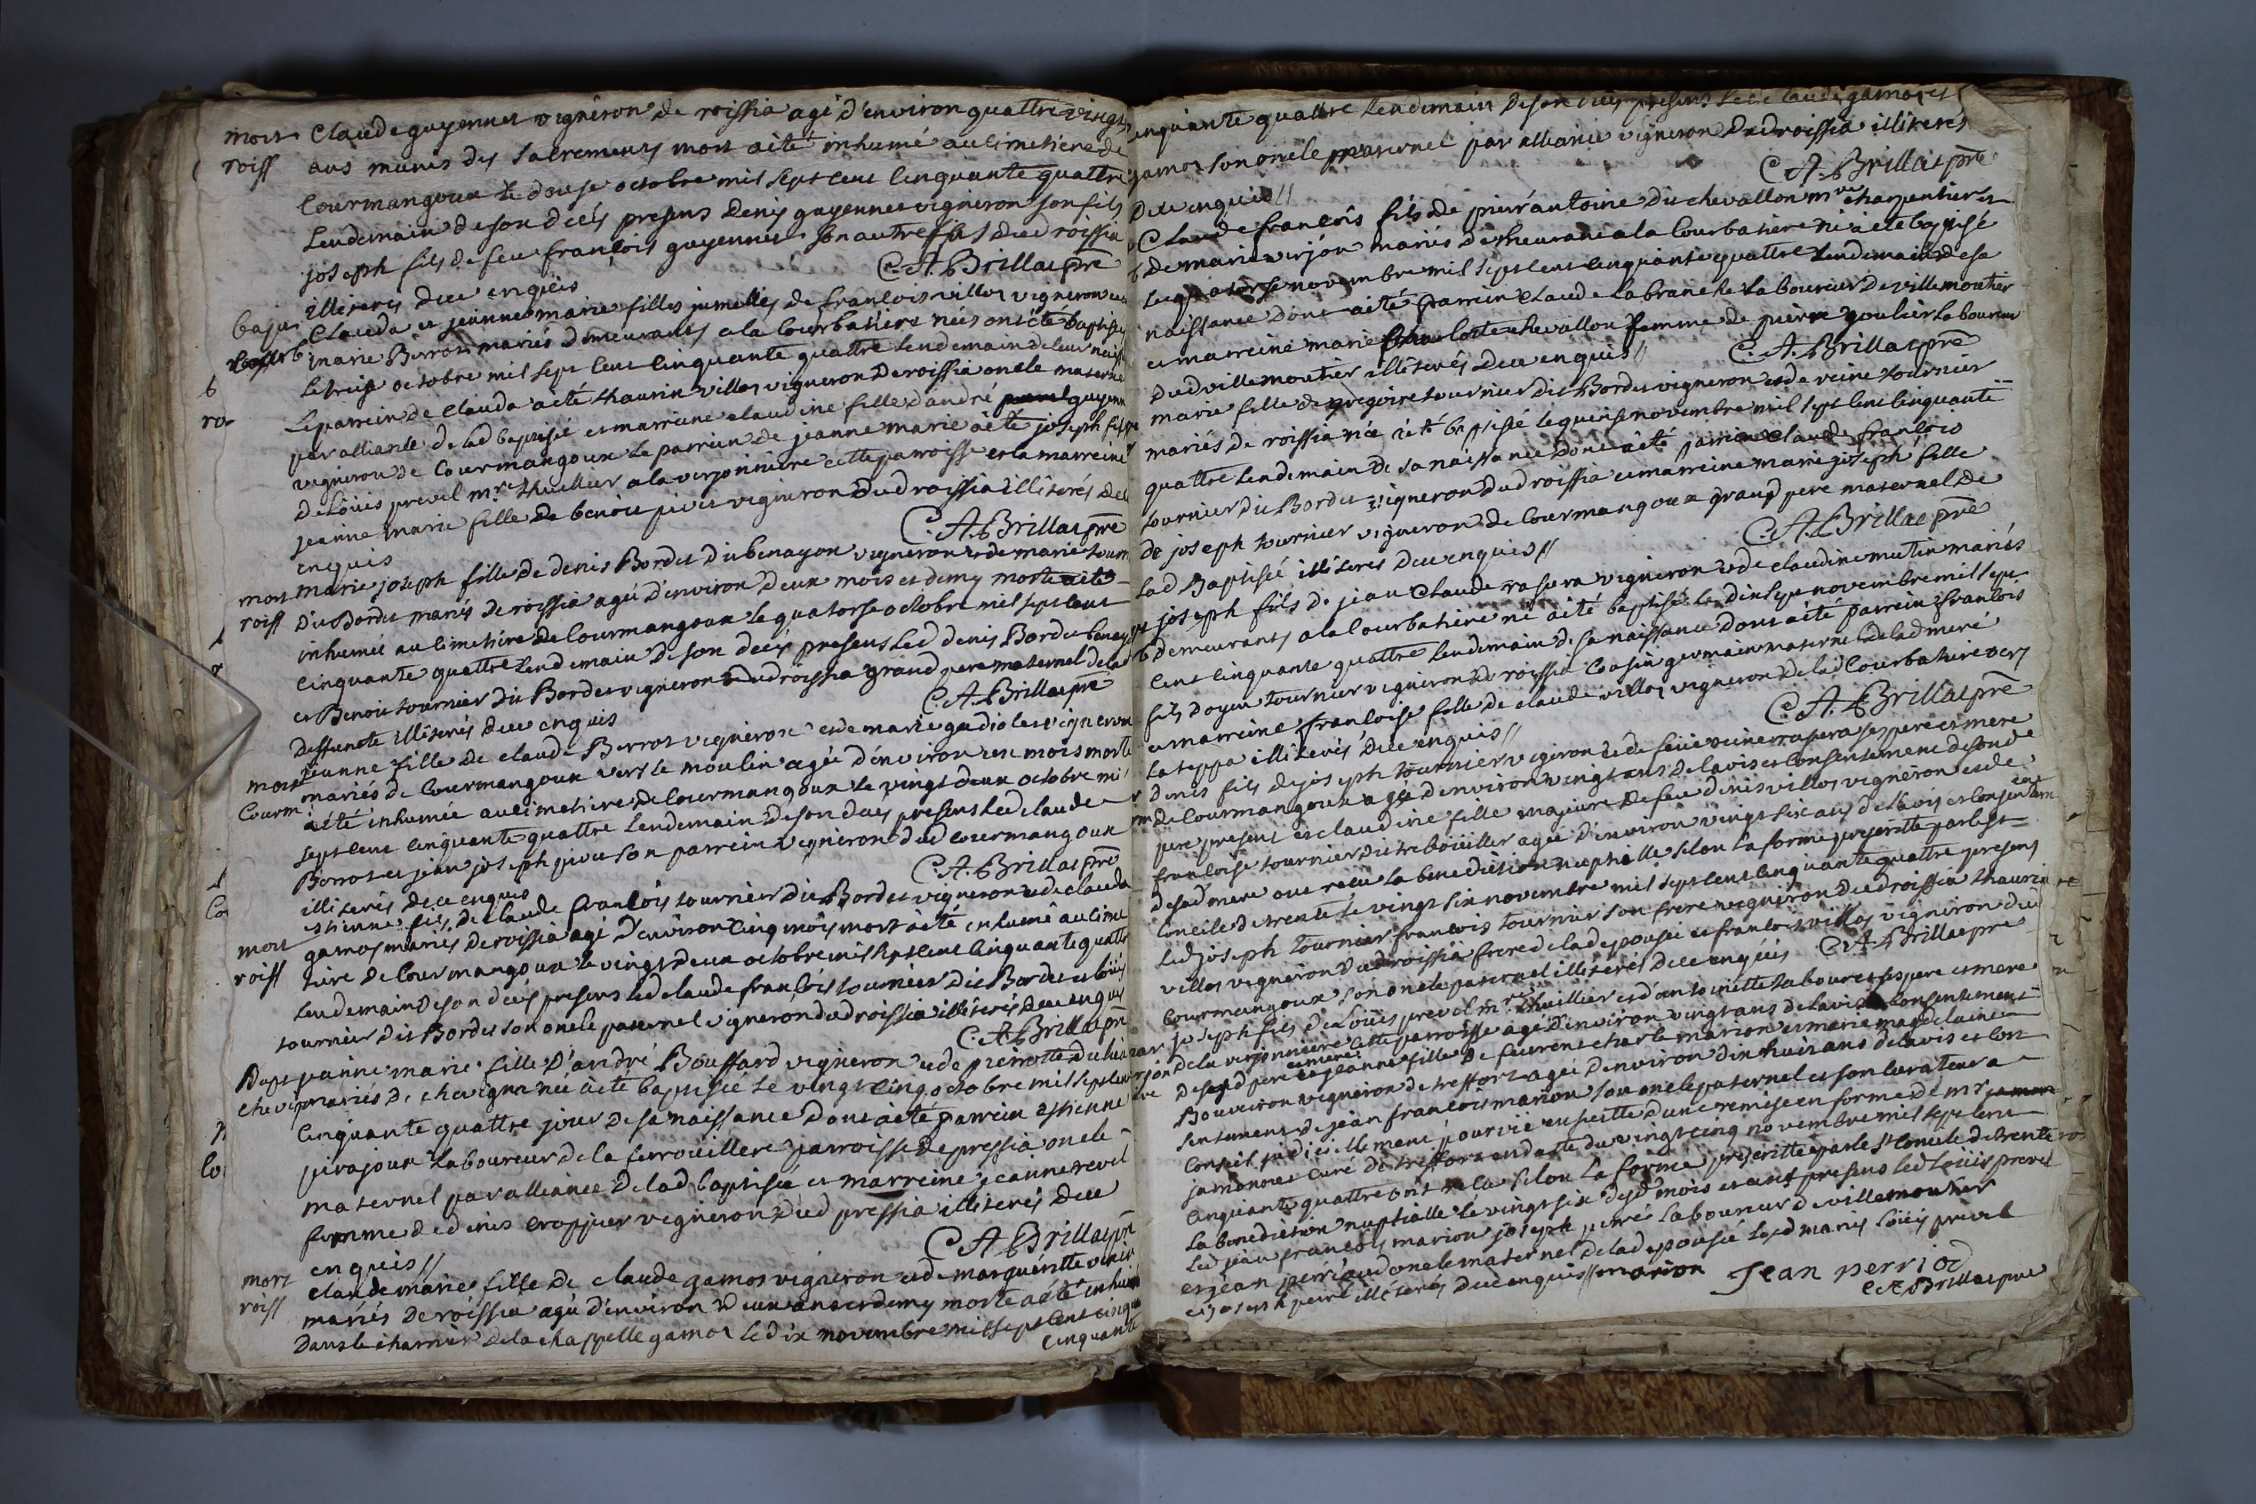 mort Claude guyennet vigneron de roissia agé d'environ quattre vingt
roiss ans munis des sacremens mort a eté inhumé au cimetiere de
Courmangoux le douse octobre mil sept cent cinquante quattre
lendemain de son deces presens Denis guyennet vigneron son fils
joseph fils de feu françois guyennet son autre fils dud roissia
illiterés de ce enquis C. A. Brillat pre
bapt Clauda et jeanne marie filles jumelles de francois villos vigneron et de
marie Borron mariés demeurants a la Courbatiere nées ont eté baptisées
b le treise octobre mil sept cent cinquante quattre lendemain de leur naiss
ro Le parrein de Clauda a eté thaurin villos vigneron de roissia oncle materne
par alliance de lad baptisée et marreine claudine fille d'andré guyenn
vigneron de Courmangoux le parrein de jeanne marie a eté joseph fils
de Loüis prevel mre thuillier a la verjonniere cette parroisse et la marreine
jeanne marie fille de benoit vigneron dud roissia illiterés de ce
enquis C. A. Brillat pre
mort marie joseph fille de denis Bordet du benayon vigneron et de marie tourn
roiss du Bordet mariés de roissia agée d'environ deux mois et demy morte a eté
inhumée au cimetiere de Courmangoux le quatorse octobre mil sept cent
cinquante quattre lendemain de son deces presens led denis Bordet
et Benoit tournier du Bordet vigneron dud roissia grand pere maternel de lad
deffuncte illiterés de ce enquis C. A. Brillat pre
mort jeanne fille de claude Borrot vigneron et de marie vigneron
Courm mariés de Courmangoux vers le moulin agée d'environ un mois morte
a eté inhumée au cimetiere de Courmangoux le vingt deux octobre mil
sept cent cinquante quattre lendemain de son deces presens led claude
Borrot et jean joseph son parrein vigneron dud Courmangoux
illiterés de ce enquis C. A. Brillat pre
mort estienne fils de claude françois tournier du Bordet vigneron et de clauda
roiss gamos mariés de roissia agé d'environ cinq mois mort a eté inhumé au cime
tiere de Courmangoux le vingt deux octobre mil sept cent cinquante quattre
lendemain de son deces presens led claude françois tournier du Bordet et loüis
tournier du Bordet son oncle paternel vigneron dud roissia illiterés de ce enquis
C. A. Brillat pre
Bapt jeanne marie fille d'andré Bouffard vigneron et de pierrotte
chevign mariés de chevignat née a eté baptisée le vingt cinq octobre mil sept cent
cinquante quattre jour de sa naissance dont a eté parrein estienne
pirajoux laboureur de la ferrouillere parroisse de pressia oncle
maternel par alliance de lad baptisée et marreine jeanne revel
femme de denis vigneron dud pressia illiterés de ce
enquis// C. A. Brillat pre
mort claude marie fille de claude gamos vigneron et de margueritte
roiss mariés de roissia agée d'environ deux ans et demy morte a eté inhumé
dans le charnier de la chappelle gamos le dix novembre mil sept cent cinqua
cinquante
cinquante quattre lendemain de son deces presens led claude gamos et
gamos son oncle paternel par alliance vigneron dud roissia illiterés
de ce enquis// C. A. Brillat pre
Claude françois fils de pierr'antoine du chevallon mre charpentier et
de marie verjon mariés demeurans a la Courbatiere né a eté baptisé
le quatorse novembre mil sept cent cinquante quattre lendemain de sa
naissance dont a eté parrein claude la branche laboureur de villemoutier
et marreine marie charlotte chevallon femme de pierre goulier laboureur
dud villemoutier illiterés de ce enquis// C. A. Brillat pre
marie fille de gregoire tournier du Bordet vigneron et de reine tournier
mariés de roissia née a eté baptisée le quinse novembre mil sept cent cinquante
quattre lendemain de sa naissance dont a eté parrein claude françois
tournier du Bordet vigneron dud roissia et marreine marie joseph fille
de joseph tournier vigneron de Courmangoux grand pere maternel de
lad Baptisée illiterés de ce enquis// C. A. Brillat pre
joseph fils de jean claude rasura vigneron et de claudine mutin mariés
demeurants a la Courbatiere né a eté baptisé le dixsept novembre mil sept
cent cinquante quattre lendemain de sa naissance dont a eté parrein françois
fils d'oyen tournier vigneron de roissia cousin germain maternel de lad mere
et marreine françoise fille de claude villos vigneron de lad Courbatiere vers
la teppa illiterés de ce enquis// C. A. Brillat pre
denis fils de joseph tournier vigneron et de feüe reine rasura ses pere et mere
de Courmangoux agé d'environ vingt ans de l'avis et consentement de sond
pere present et claudine fille majeure de feu denis villos vigneron et de
françoise tournier du trebouillet agée d'environ vingt six ans de l'avis et consentem
de sad mere ont recu la benediction nuptialle selon la forme prescritte par le st
Concile de trente le vingt six novembre mil sept cent cinquante quattre presens
led joseph tournier francois tournier son frere vigneron dud roissia thaurin
villos vigneron dud roissia frere de lad epousée et francois villos vigneron dud
Courmangoux son oncle paternel illiterés de ce enquis C. A. Brillat pre
joseph fils de Loüis prevel mre thuillier et d'antoinette labouret ses pere et mere
de la verjonniere cette parroisse agé d'environ vingt ans de l'avis et consentement
de sesd pere et mere et jeanne fille de feu rené charle marion et marie magdelaine
Bouveiron vigneron de treffort agée d'environ dix huit ans de l'avis et con
sentement de jean francois marion son oncle paternel et son curateur a
conseil judiciellement pourvüe ensuitte d'une remise en forme de mr
jamonnet curé de treffort en datte du vingt cinq novembre mil sept cent
cinquante quattre ont recu selon la forme prescritte par le st Concile de trente
la benediction nuptialle le vingt six desd mois et an presens led Loüis prevel
led jean francois marion joseph perret laboureur de villemoutier
et jean perriod oncle maternel de lad epousée lesd mariés Loüis prevel
et joseph perret illiterés de ce enquis// marion Jean perriod
C. A. Brillat pre